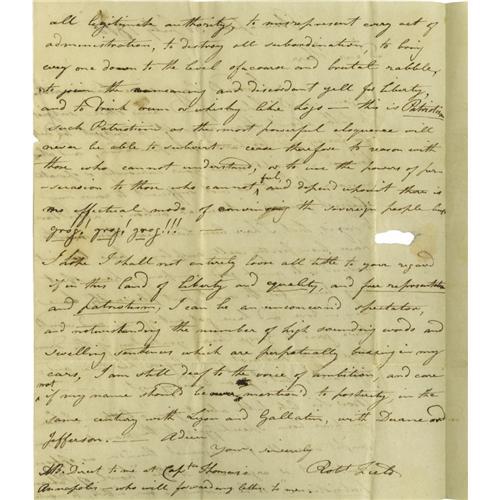 all legitimate authority, to misrepresent every act of
administration, to destroy all subordination, to bring
every one down to the level of coarse and brutal rabble,
to join the unmeaning and discordant yell for liberty,
and to drink rum or whisky like Hogs — this is Patriotism
such Patriotism as the most powerful eloquence will
never be able to subvert. cease therefore to reason with
those who cannot understand, or to use the powers of per-
suasion to those who cannot feel, and depend upon it there is
no effectual mode of convincing the sovereign people but
grog! grog! grog!!! —
I hope I shall not entirely loose all title to your regard
if in this land of liberty and equality, and free representation
and patriotism, I can be an unconcerned spectator,
and notwithstanding the number of high sounding words and
swelling sentences which are perpetually buzzing in my
ears, I am still deaf to the voice of ambition, and care
not if my name should be ever mention'd to posterity in the
same century with Lyon and Gallatin, with Duane and
Jefferson. — Adieu
Yours sincerely
NB. direct to me at Captn Thomas's Robt
Annapolis — who will forward my letter to me.